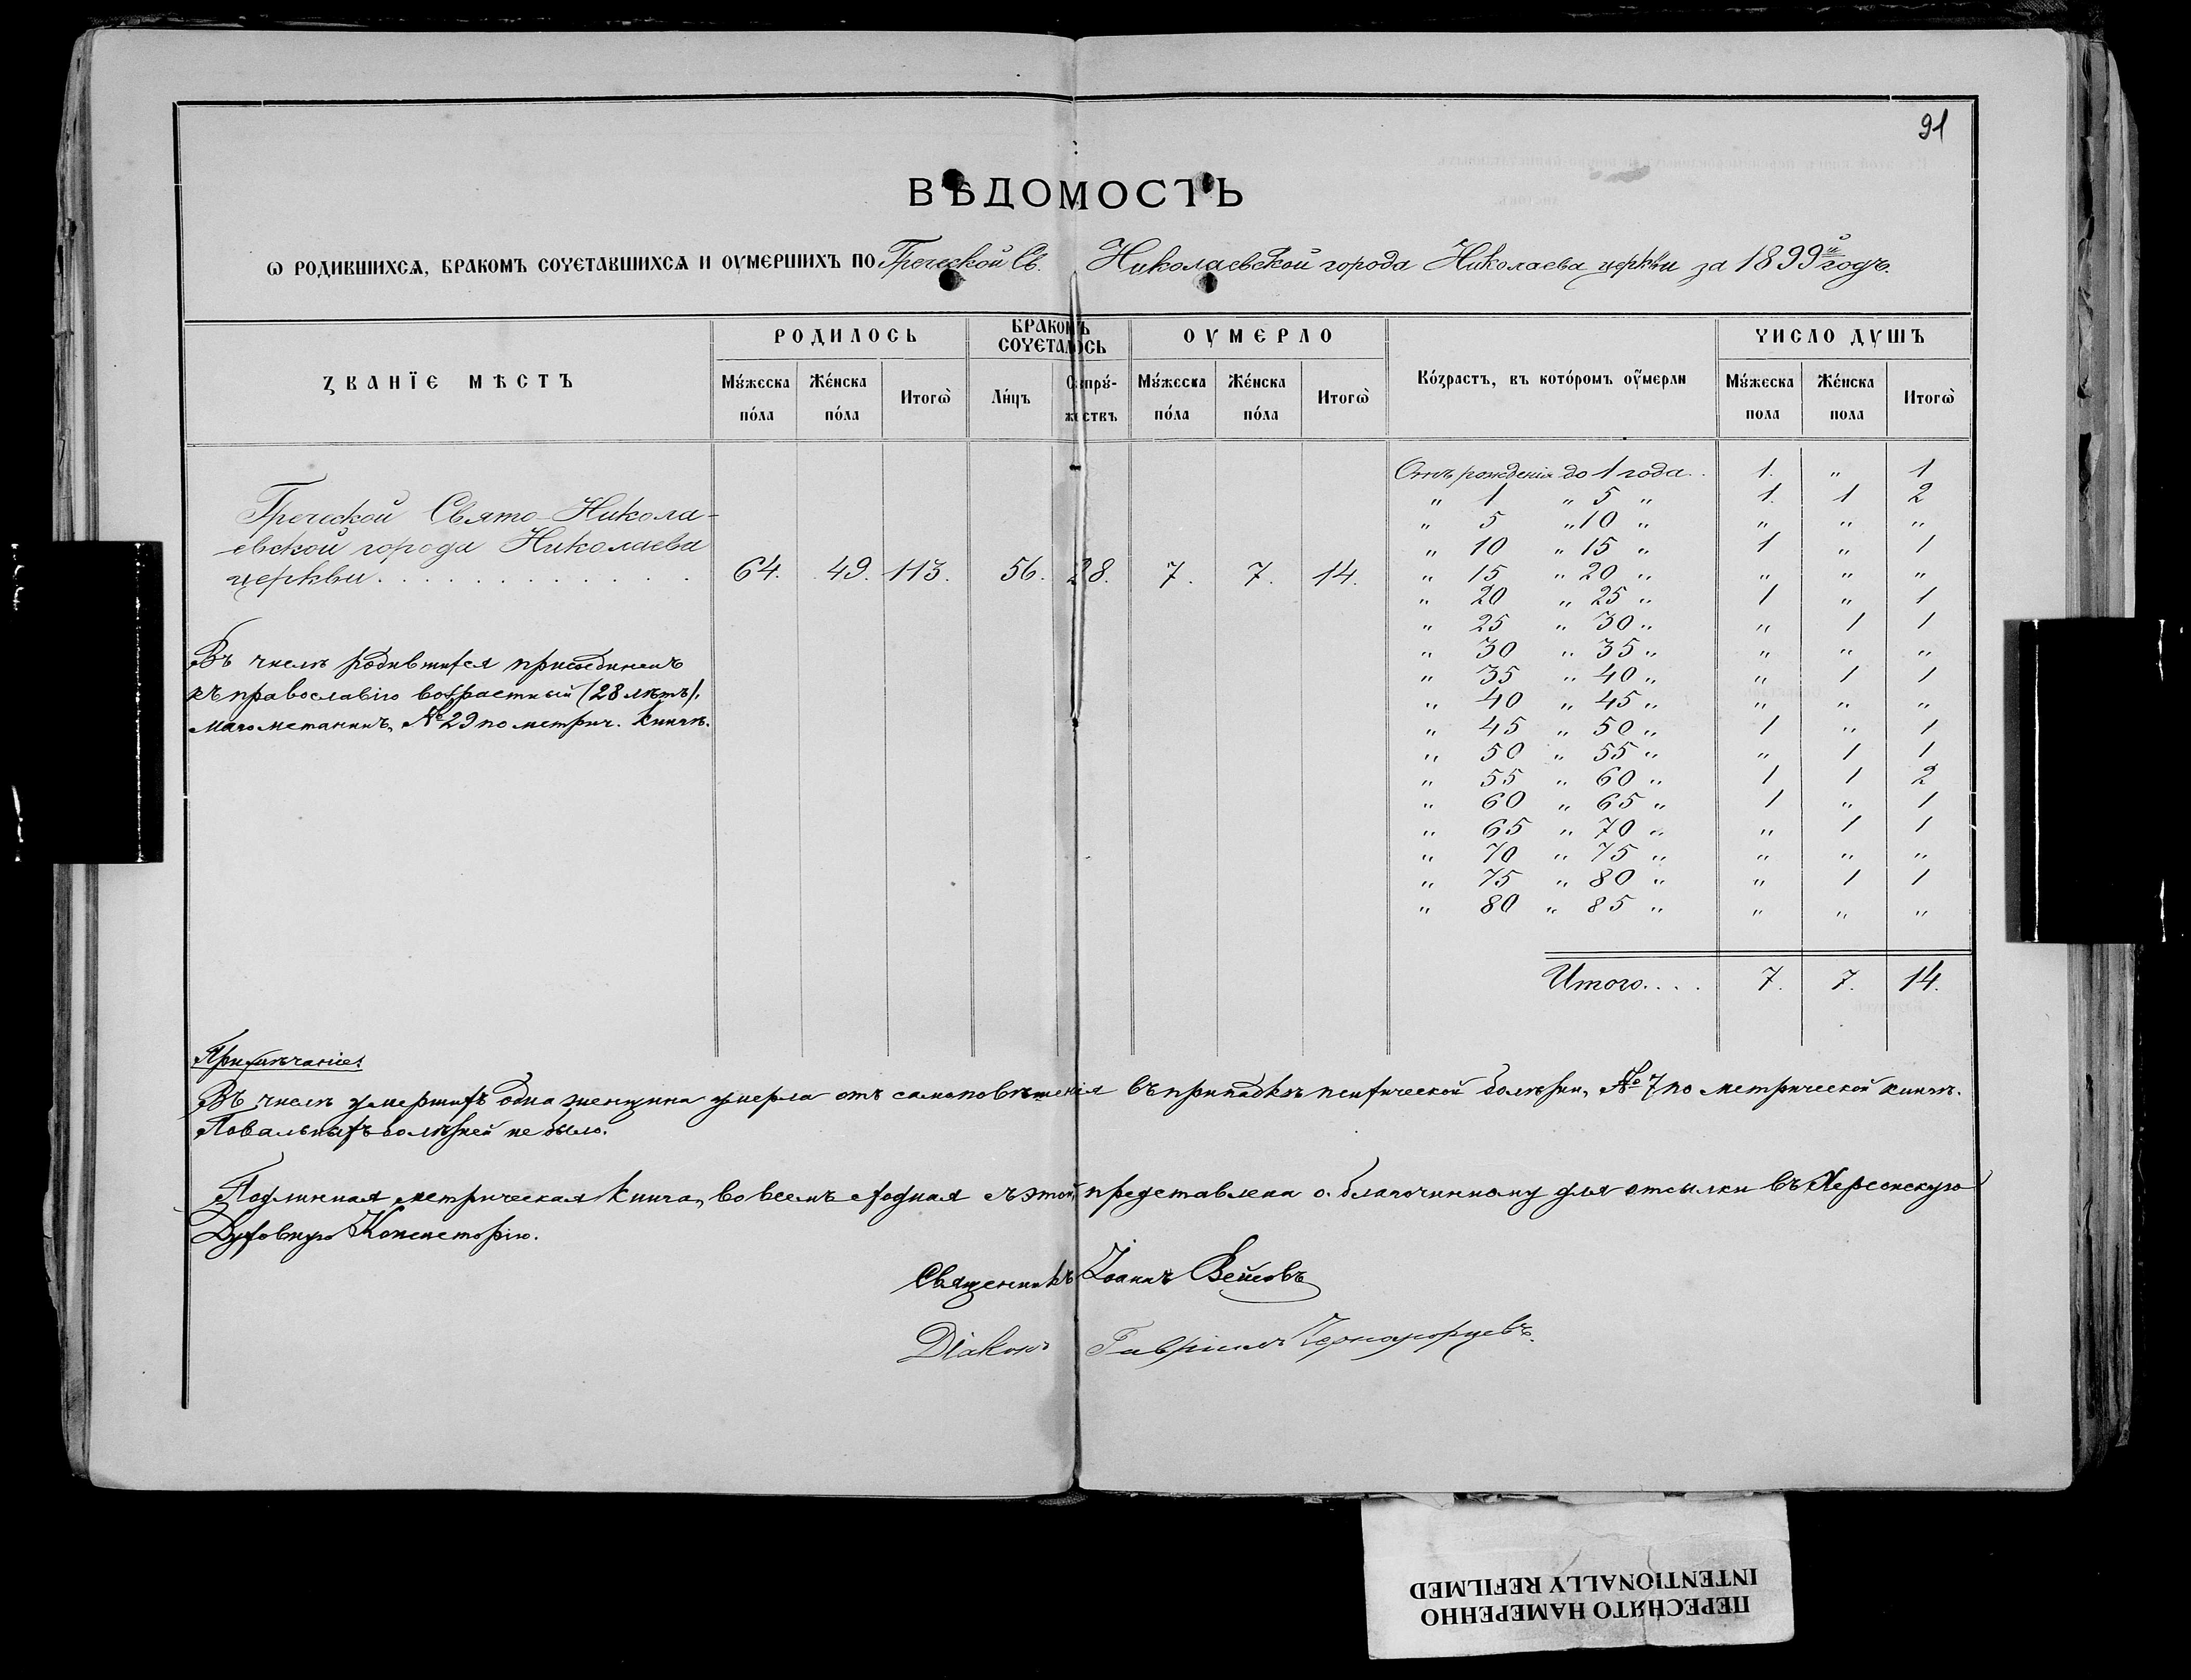 91
ВѢДОМОСТЬ
Ѡ РОДИВШИХСѦ, БРАКОМЪ СОЧЕТАВШИХСѦ И ОУМЕРШИХЪ ПО Греческой Св. Николаевской города Николаева церкви за 1899й годъ.
ЗВАНЇЕ МѢСТЪ
РОДИЛОСЬ
БРАКОМЪ СОЧЕТАЛОСЬ
ОУМЕРЛО
Во́зрастъ, въ кото́ромъ оу҆мерли
ЧИСЛО ДУШЪ
Мꙋ́жеска по́ла
Же́нска по́ла
Итогѡ̀
Ли́цъ
Сꙋпрꙋ́-жествъ
Мꙋ́жеска по́ла
Же́нска по́ла
Итогѡ̀
Мꙋ́жеска пола
Же́нска пола
Итогѡ̀
Греческой Свято-Никола-
евской города Николаева
церкви . . . . . . . . . . . . 64. 49. 113. 56. 28. 7. 7. 14.
Въ числѣ родившихся присоединенъ
къ православію возрастный (28 лѣтъ),
магометанинъ, № 29 по метрич. книгѣ.
Отъ рожденія до 1 года . . 1. " 1
" 1 " 5 " 1. 1 2
" 5 " 10 " " " "
" 10 " 15 " 1 " 1
" 15 " 20 " " " "
" 20 " 25 " 1 " 1
" 25 " 30 " " 1 1
" 30 " 35 " " " "
" 35 " 40 " " 1 1
" 40 " 45 " " " "
" 45 " 50 " 1 " 1
" 50 " 55 " " 1 1
" 55 " 60 " 1 1 2
" 60 " 65 " 1 " 1
" 65 " 70 " " 1 1
" 70 " 75 " " " "
" 75 " 80 " " 1 1
" 80 " 85 " " " "
Итого. . . . 7. 7. 14.
Примѣчаніе:
Въ числѣ умершихъ одна женщина умерла отъ самоповѣшенія въ припадкѣ психической болѣзни, № 7 по метрической книгѣ.
Повальныхъ болѣзней не было.
Подлинная метрическая книга, во всемъ сходная съ этой, представлена о. благочинному для отсылки въ Херсонскую
Духовную Консисторію.
Священникъ Іоаннъ
Діаконъ Гавріилъ Черногорцевъ.
ПЕРЕСНЯТО НАМЕРЕННО
INTENTIONALLY REFILMED